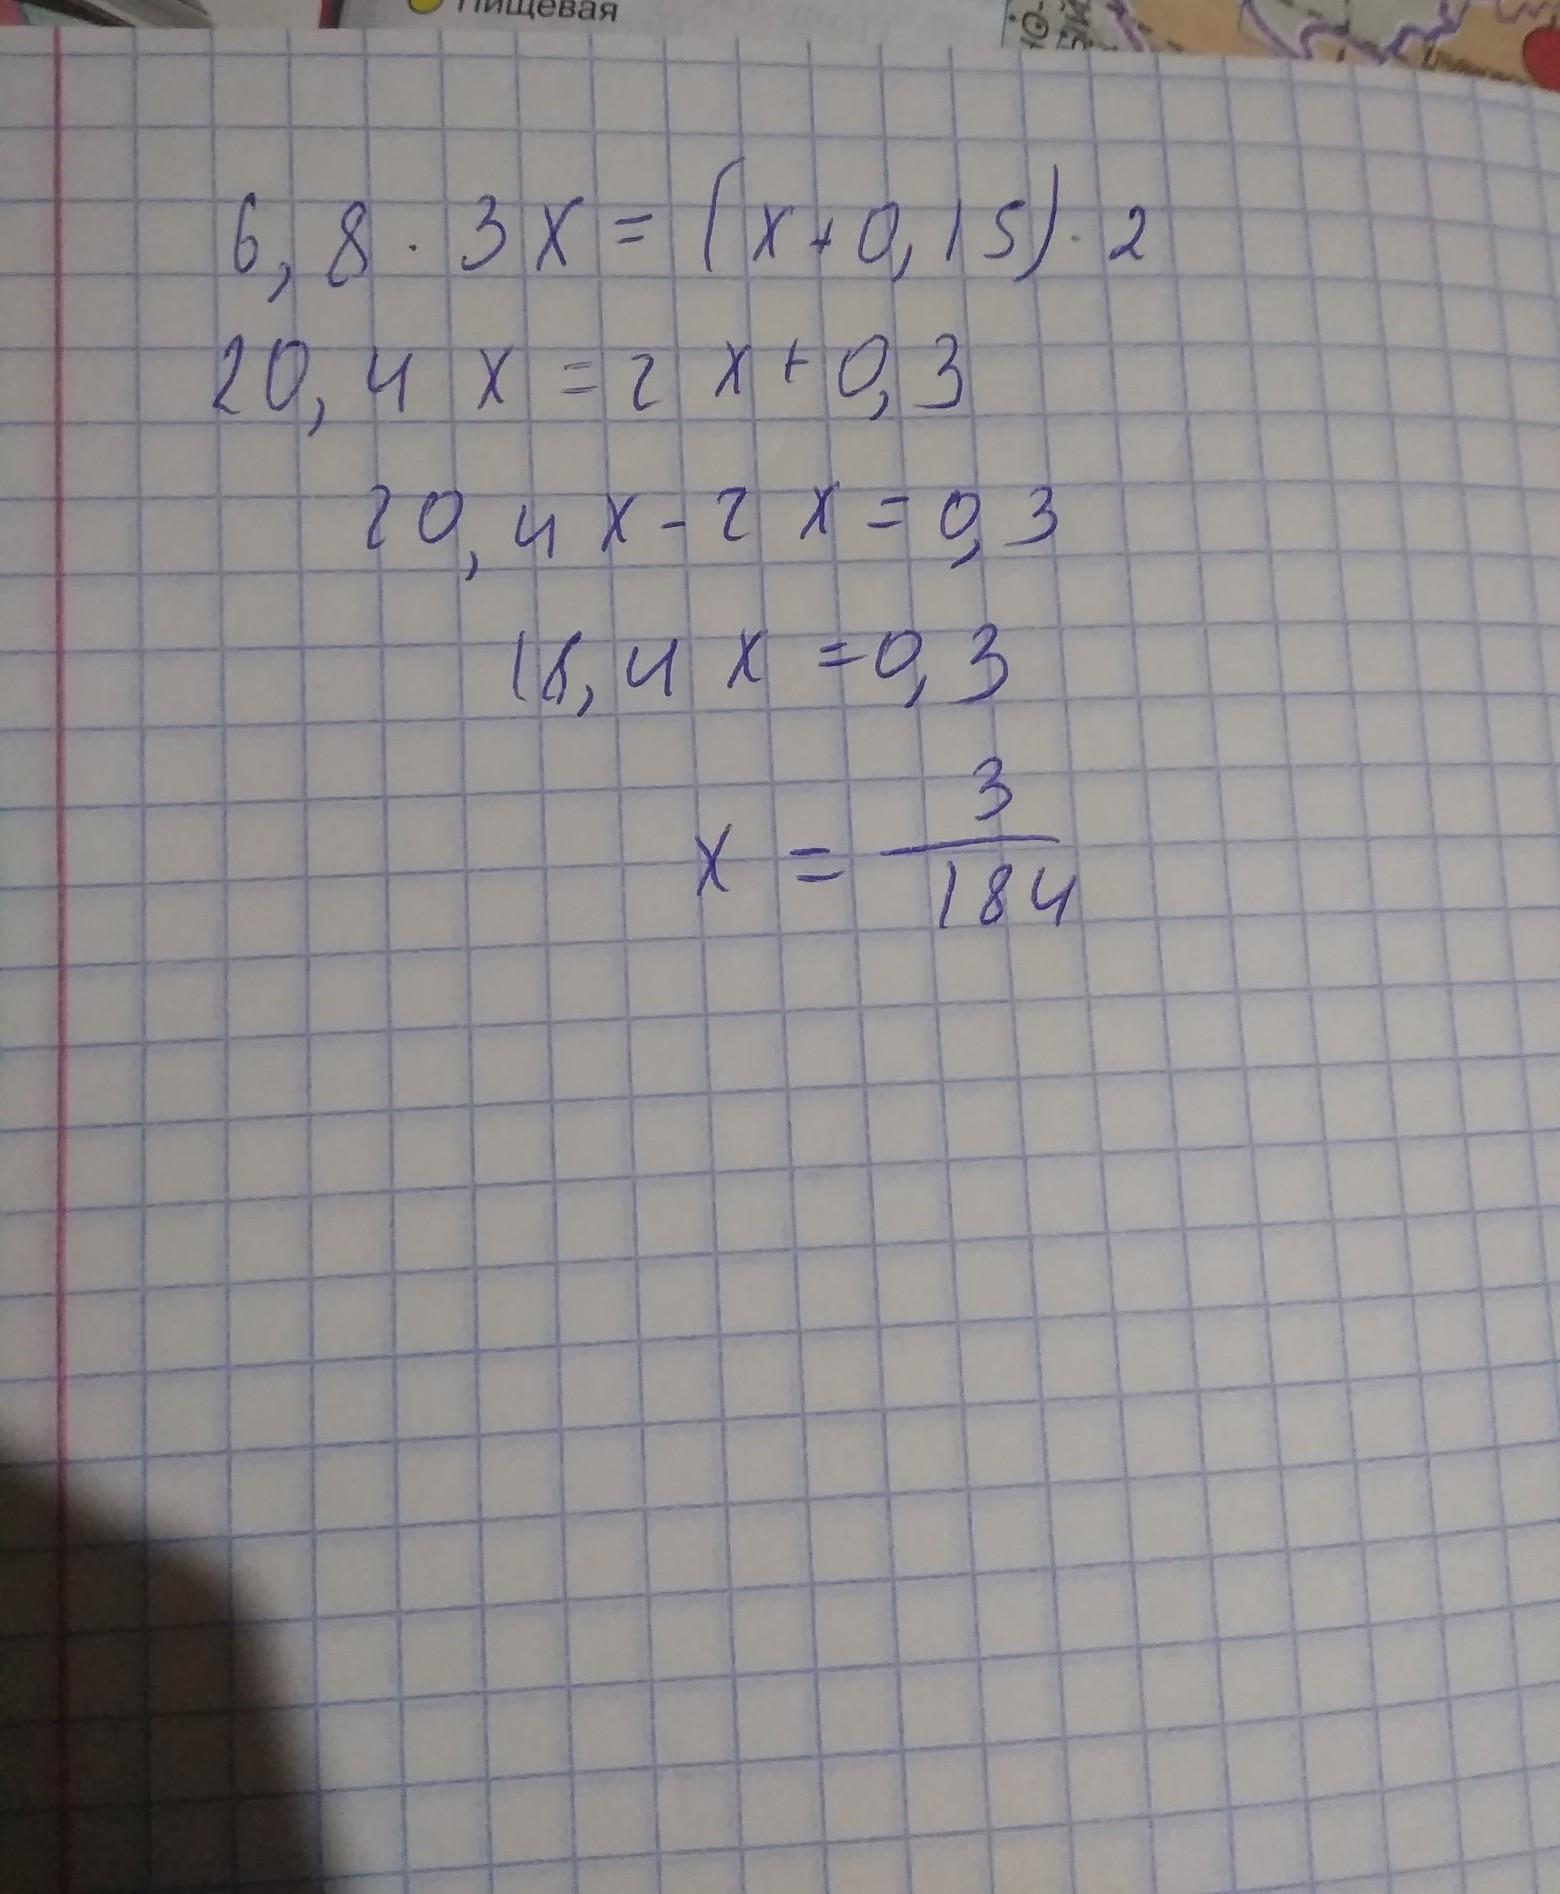 Пищевая
6,8 · 3x = (x+0,15) · 2
20,4 x = 2 x + 0,3
20,4 x - 2 x = 0,3
18,4 x = 0,3
x = 3/184